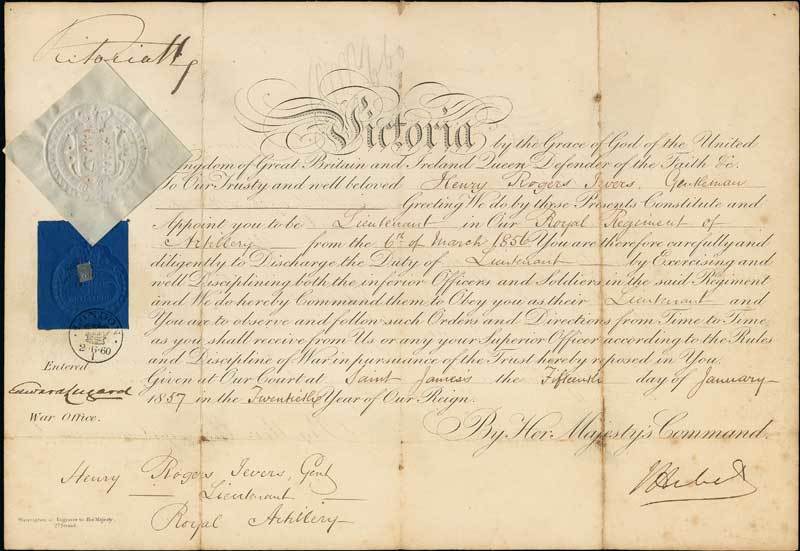 Victoria R
Victoria by the Grace of God of the United
Kingdom of Great Britain and Ireland Queen Defender of the Faith &c.
To Our Trusty and well beloved Henry Rogers Ievers, Gentleman
Greeting We do by these Presents Constitute and
Appoint you to be Lieutenant in Our Royal Regiment of
Artillery from the 6th of March 1856 You are therefore carefully and
diligently to Discharge the Duty of Lieutenant by Exercising and
well Disciplining both the inferior Officers and Soldiers in the said Regiment
and We do hereby Command them to Obey you as their Lieutenant and
You are to observe and follow such Orders and Directions from Time to Time
as you shall receive from Us or any your Superior Officer according to the Rules
and Discipline of War in pursuance of the Trust hereby reposed in You.
Given at Our Court at Saint James's the Fifteenth day of January
1857 in the Twentieth Year of Our Reign.
By Her Majesty's Command.
LONDON
2·6·60
Entered
Edward Lugard
War Office.
Henry Rogers Ievers, Gent
Lieutenant
Royal Artillery
Engraver to Her Majesty,